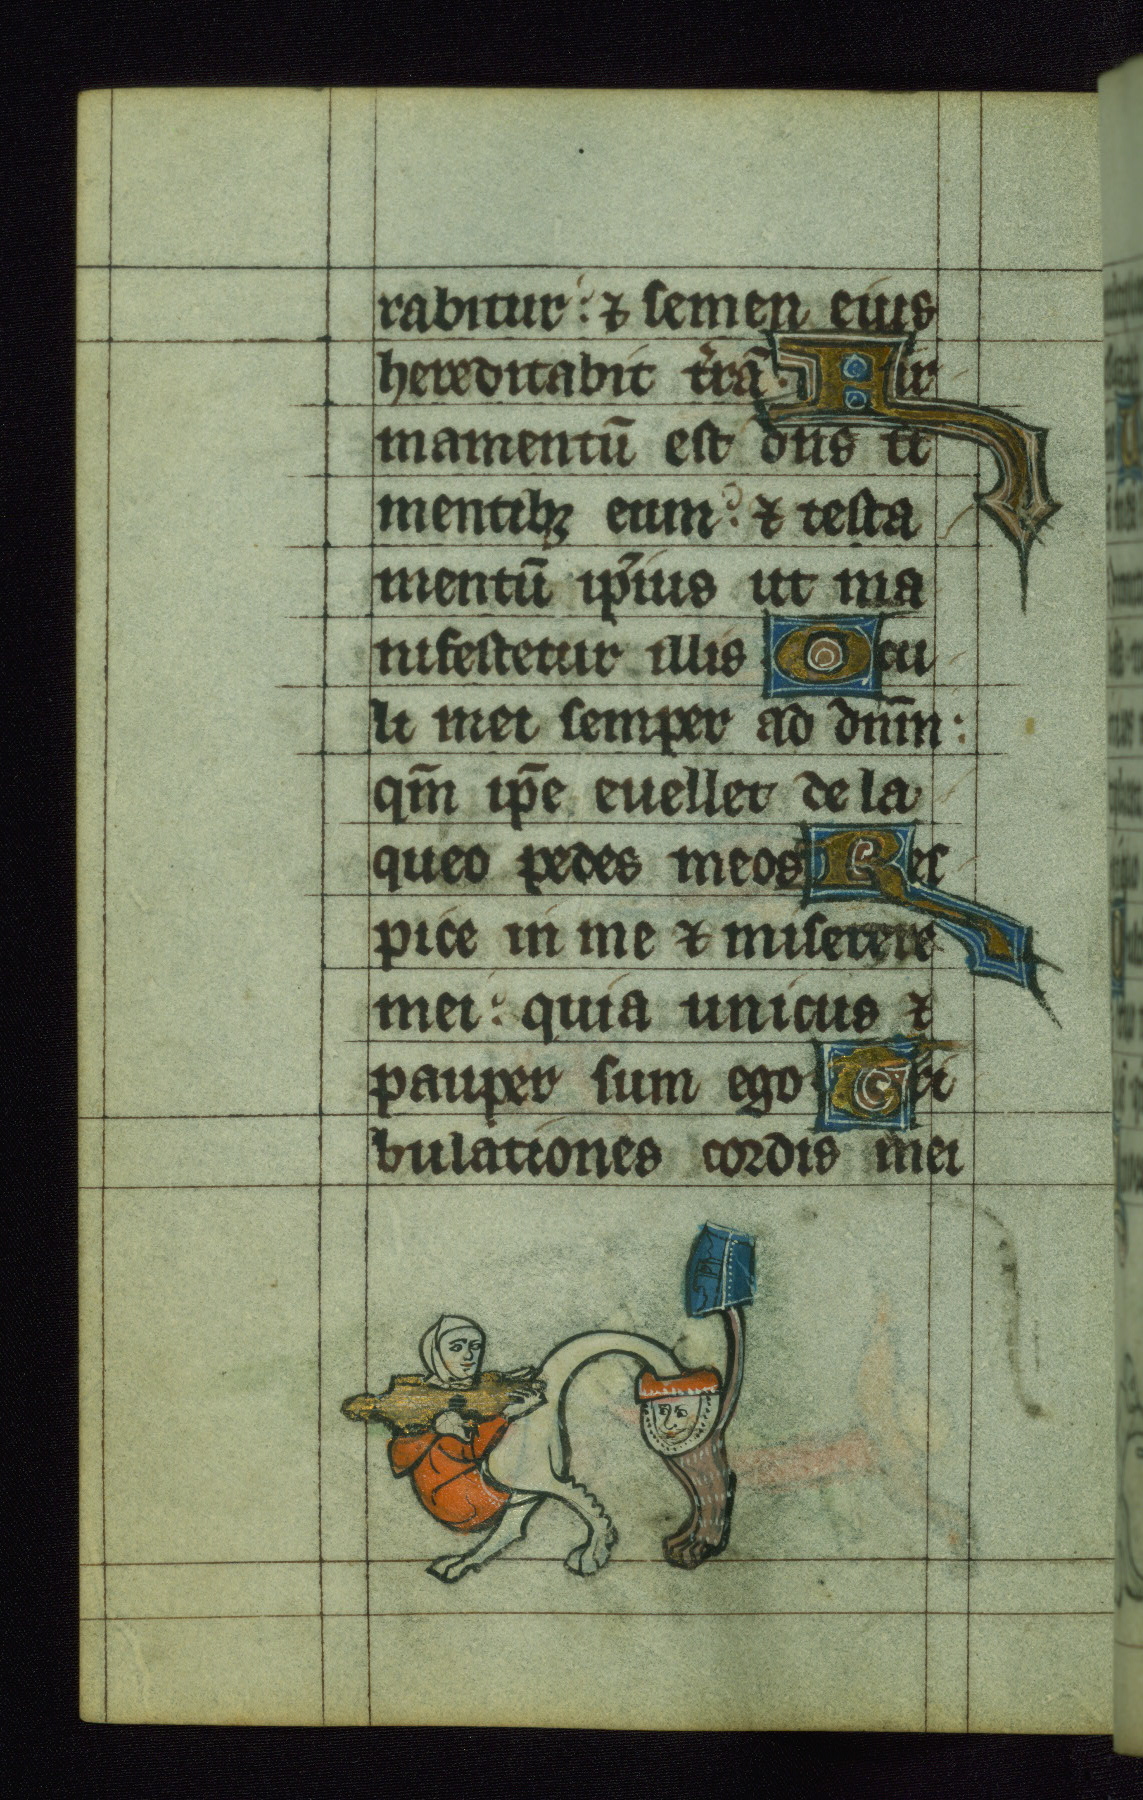 rabitur: ⁊ semen eius
hereditabit t̾rã. Fir
mamentũ est dñs ti
mentibꝫ eum: ⁊ testa
mentũ ip̾ius ut ma
nifestetur illis Ocu
li mei semper ad dñm:
qm̃ ip̃e euellet de la
queo pedes meos Res
pice in me ⁊ miserere
mei: quia unicus ⁊
pauper sum ego Tri
bulationes cordis mei